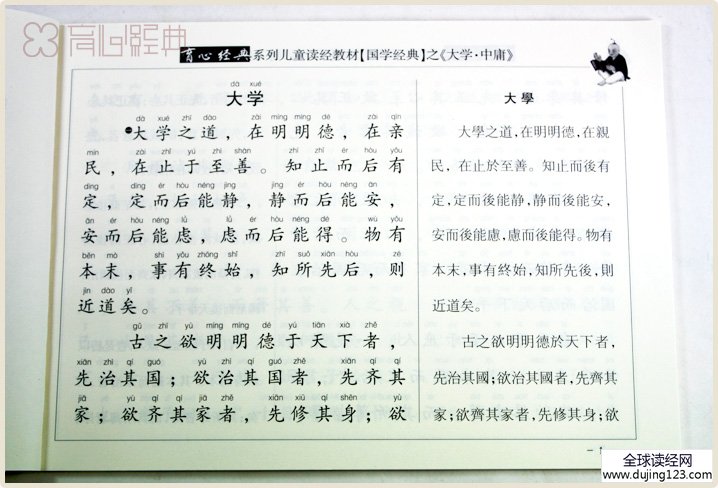 育心经典
育心经典系列儿童读经教材【国学经典】之《大学·中庸》
dà xué
大学
dà xué zhī dào zài míng míng dé zài qīn
大学之道，在明明德，在亲
mín zài zhǐ yú zhì shàn zhī zhǐ ér hòu yǒu
民，在止于至善。知止而后有
dìng dìng ér hòu néng jìng jìng ér hòu néng ān
定，定而后能静，静而后能安，
ān ér hòu néng lǜ lǜ ér hòu néng dé wù yǒu
安而后能虑，虑而后能得。物有
běn mò shì yǒu zhōng shǐ zhī suǒ xiān hòu zé
本末，事有终始，知所先后，则
jìn dào yǐ
近道矣。
gǔ zhī yù míng míng dé yú tiān xià zhě
古之欲明明德于天下者，
xiān zhì qí guó yù zhì qí guó zhě xiān qí qí
先治其国；欲治其国者，先齐其
jiā yù qí qí jiā zhě xiān xiū qí shēn yù
家；欲齐其家者，先修其身；欲
大學
大學之道，在明明德，在親
民，在止於至善。知止而後有
定，定而後能静，静而後能安，
安而後能慮，慮而後能得。物有
本末，事有终始，知所先後，則
近道矣。
古之欲明明德於天下者，
先治其國；欲治其國者，先齊其
家；欲齊其家者，先修其身；欲
全球读经网
www.dujing123.com